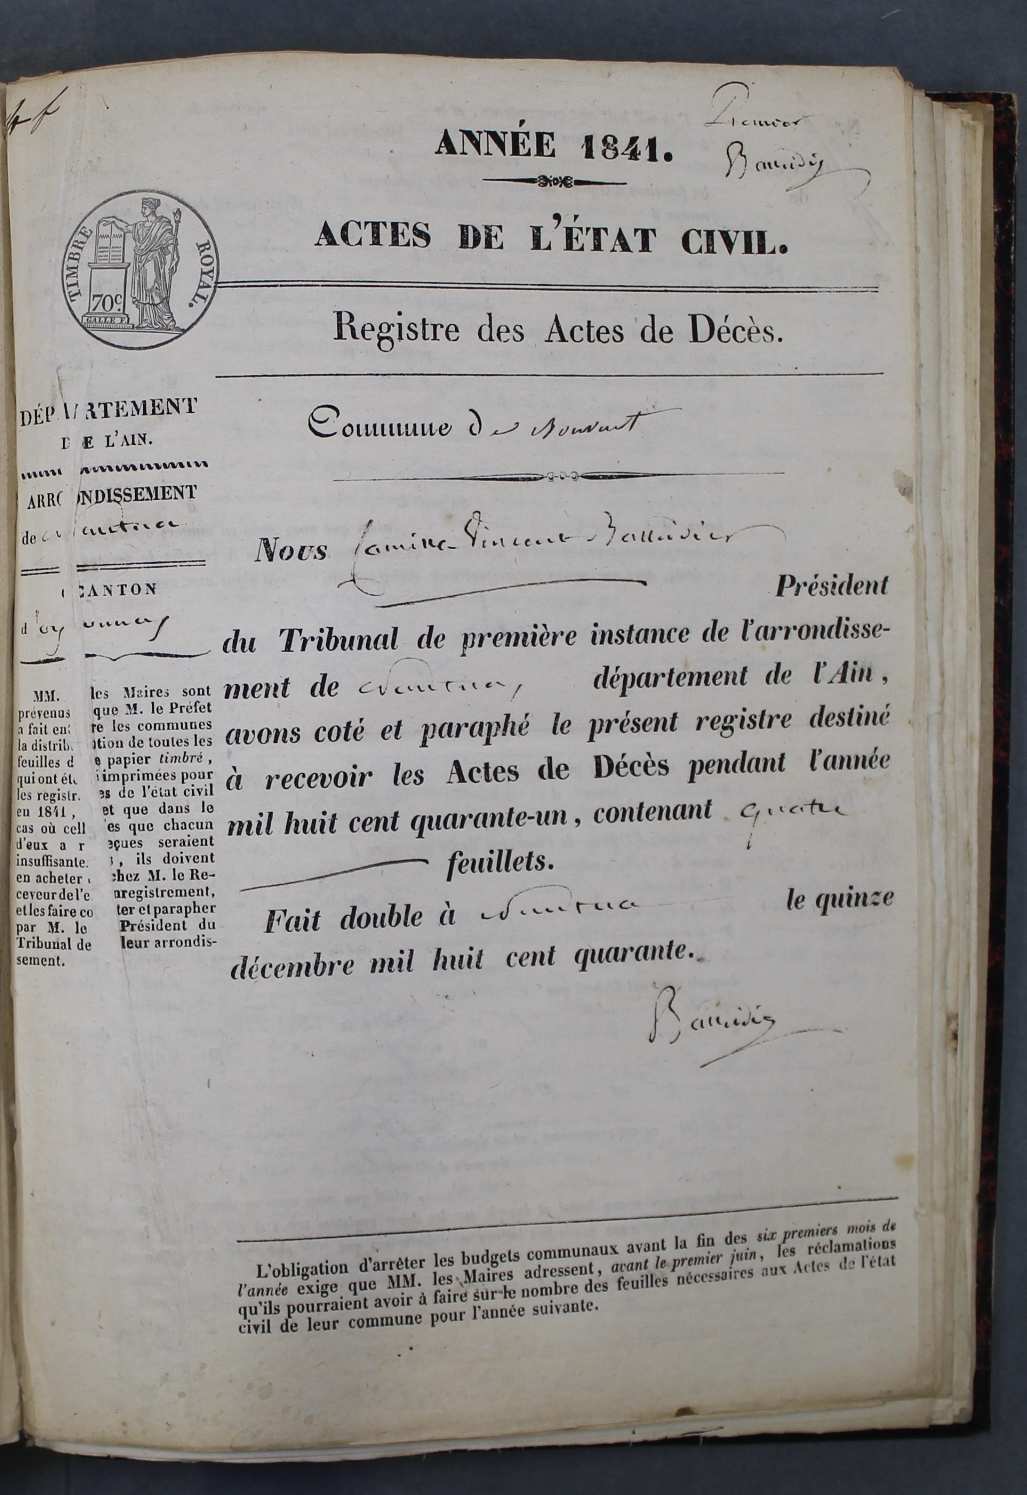 4 f
Premier
ANNÉE 1841.
ACTES DE L'ÉTAT CIVIL.
TIMBRE ROYAL.
70c
GALLE F.
Registre des Actes de Décès.
DÉPARTEMENT
DE L'AIN.
ARRONDISSEMENT
de Nantua
CANTON
d'oyonnax
MM. les Maires sont
prévenus que M. le Préfet
a fait entre les communes
la distribution de toutes les
feuilles de papier timbré,
qui ont été imprimées pour
les registres de l'état civil
en 1841, et que dans le
cas où celles que chacun
d'eux a reçues seraient
insuffisantes, ils doivent
en acheter chez M. le Re-
ceveur de l'enregistrement,
et les faire coter et parapher
par M. le Président du
Tribunal de leur arrondis-
sement.
Commune de
Nous Vincent
Président
du Tribunal de première instance de l'arrondisse-
ment de Nantua, département de l'Ain,
avons coté et paraphé le présent registre destiné
à recevoir les Actes de Décès pendant l'année
mil huit cent quarante-un, contenant quatre
feuillets.
Fait double à Nantua le quinze
décembre mil huit cent quarante.
L'obligation d'arrêter les budgets communaux avant la fin des six premiers mois de
l'année exige que MM. les Maires adressent, avant le premier juin, les réclamations
qu'ils pourraient avoir à faire sur le nombre des feuilles nécessaires aux Actes de l'état
civil de leur commune pour l'année suivante.